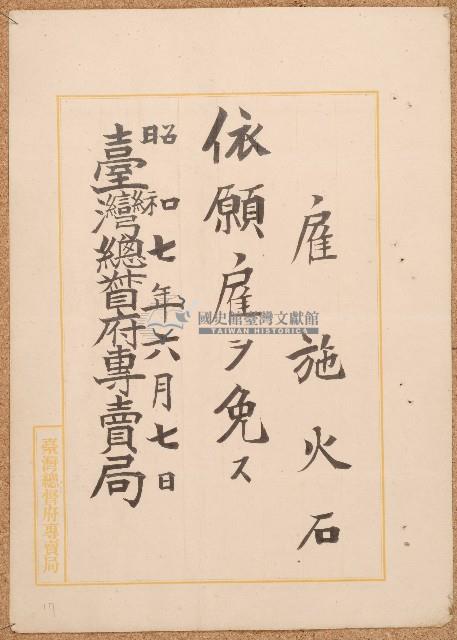 雇 施火石
依願雇ヲ免ス
昭和七年六月七日
臺灣總督府專賣局
臺灣總督府專賣局
國史館臺灣文獻館
TAIWAN HISTORICA
17